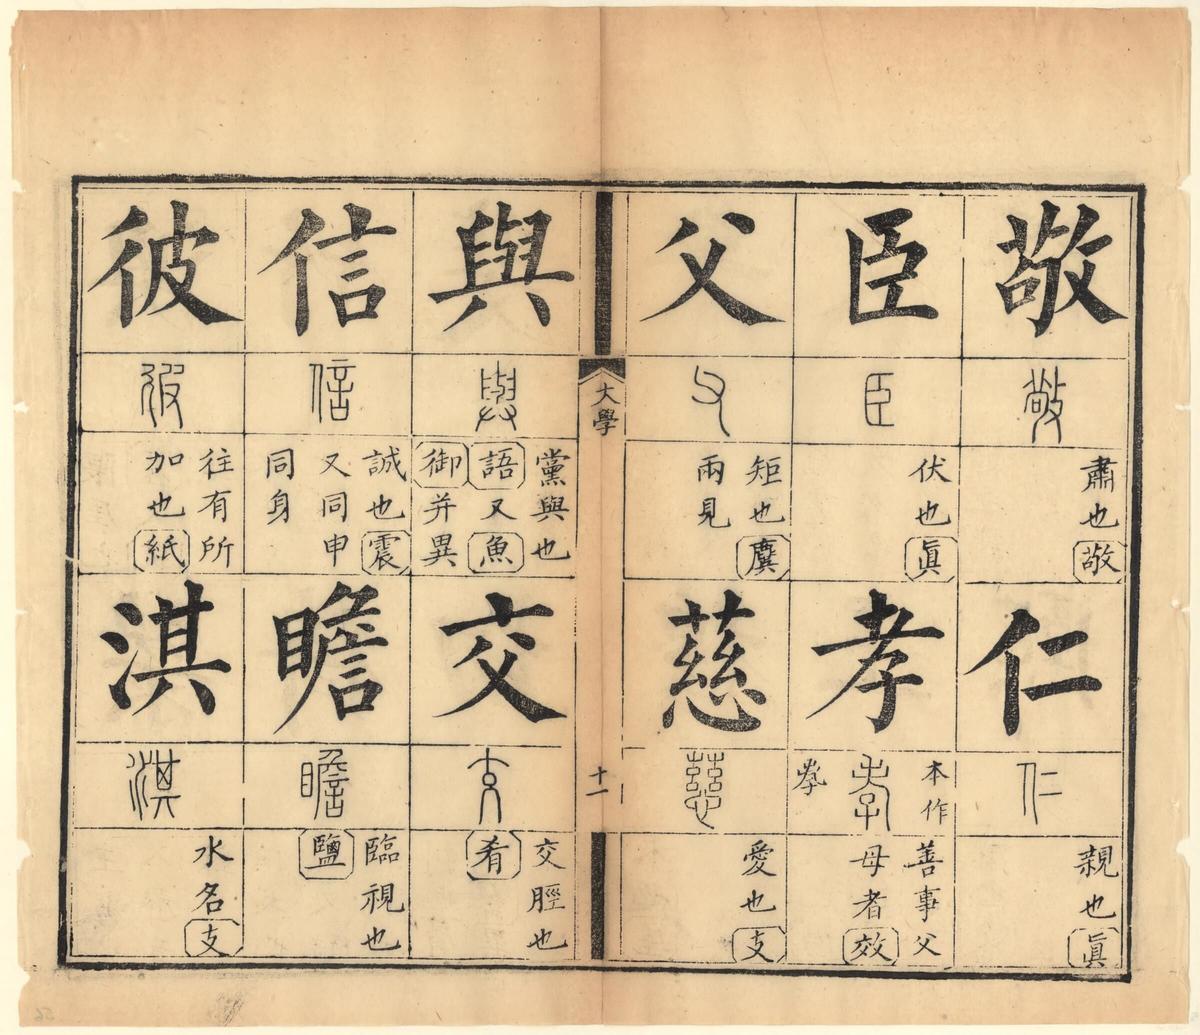 敬
敬
肅也敬
仁
仁
親也眞
臣
臣
伏也眞
孝
本作
孝
𡥉
善事父
母者效
父
父
矩也麌
兩見
慈
慈
愛也支
大學
十一
與
與
黨與也
語又魚
御并異
交
交
交脛也
肴
信
信
誠也震
又同申
同身
瞻
瞻
臨視也
鹽
彼
彼
往有所
加也紙
淇
淇
水名支